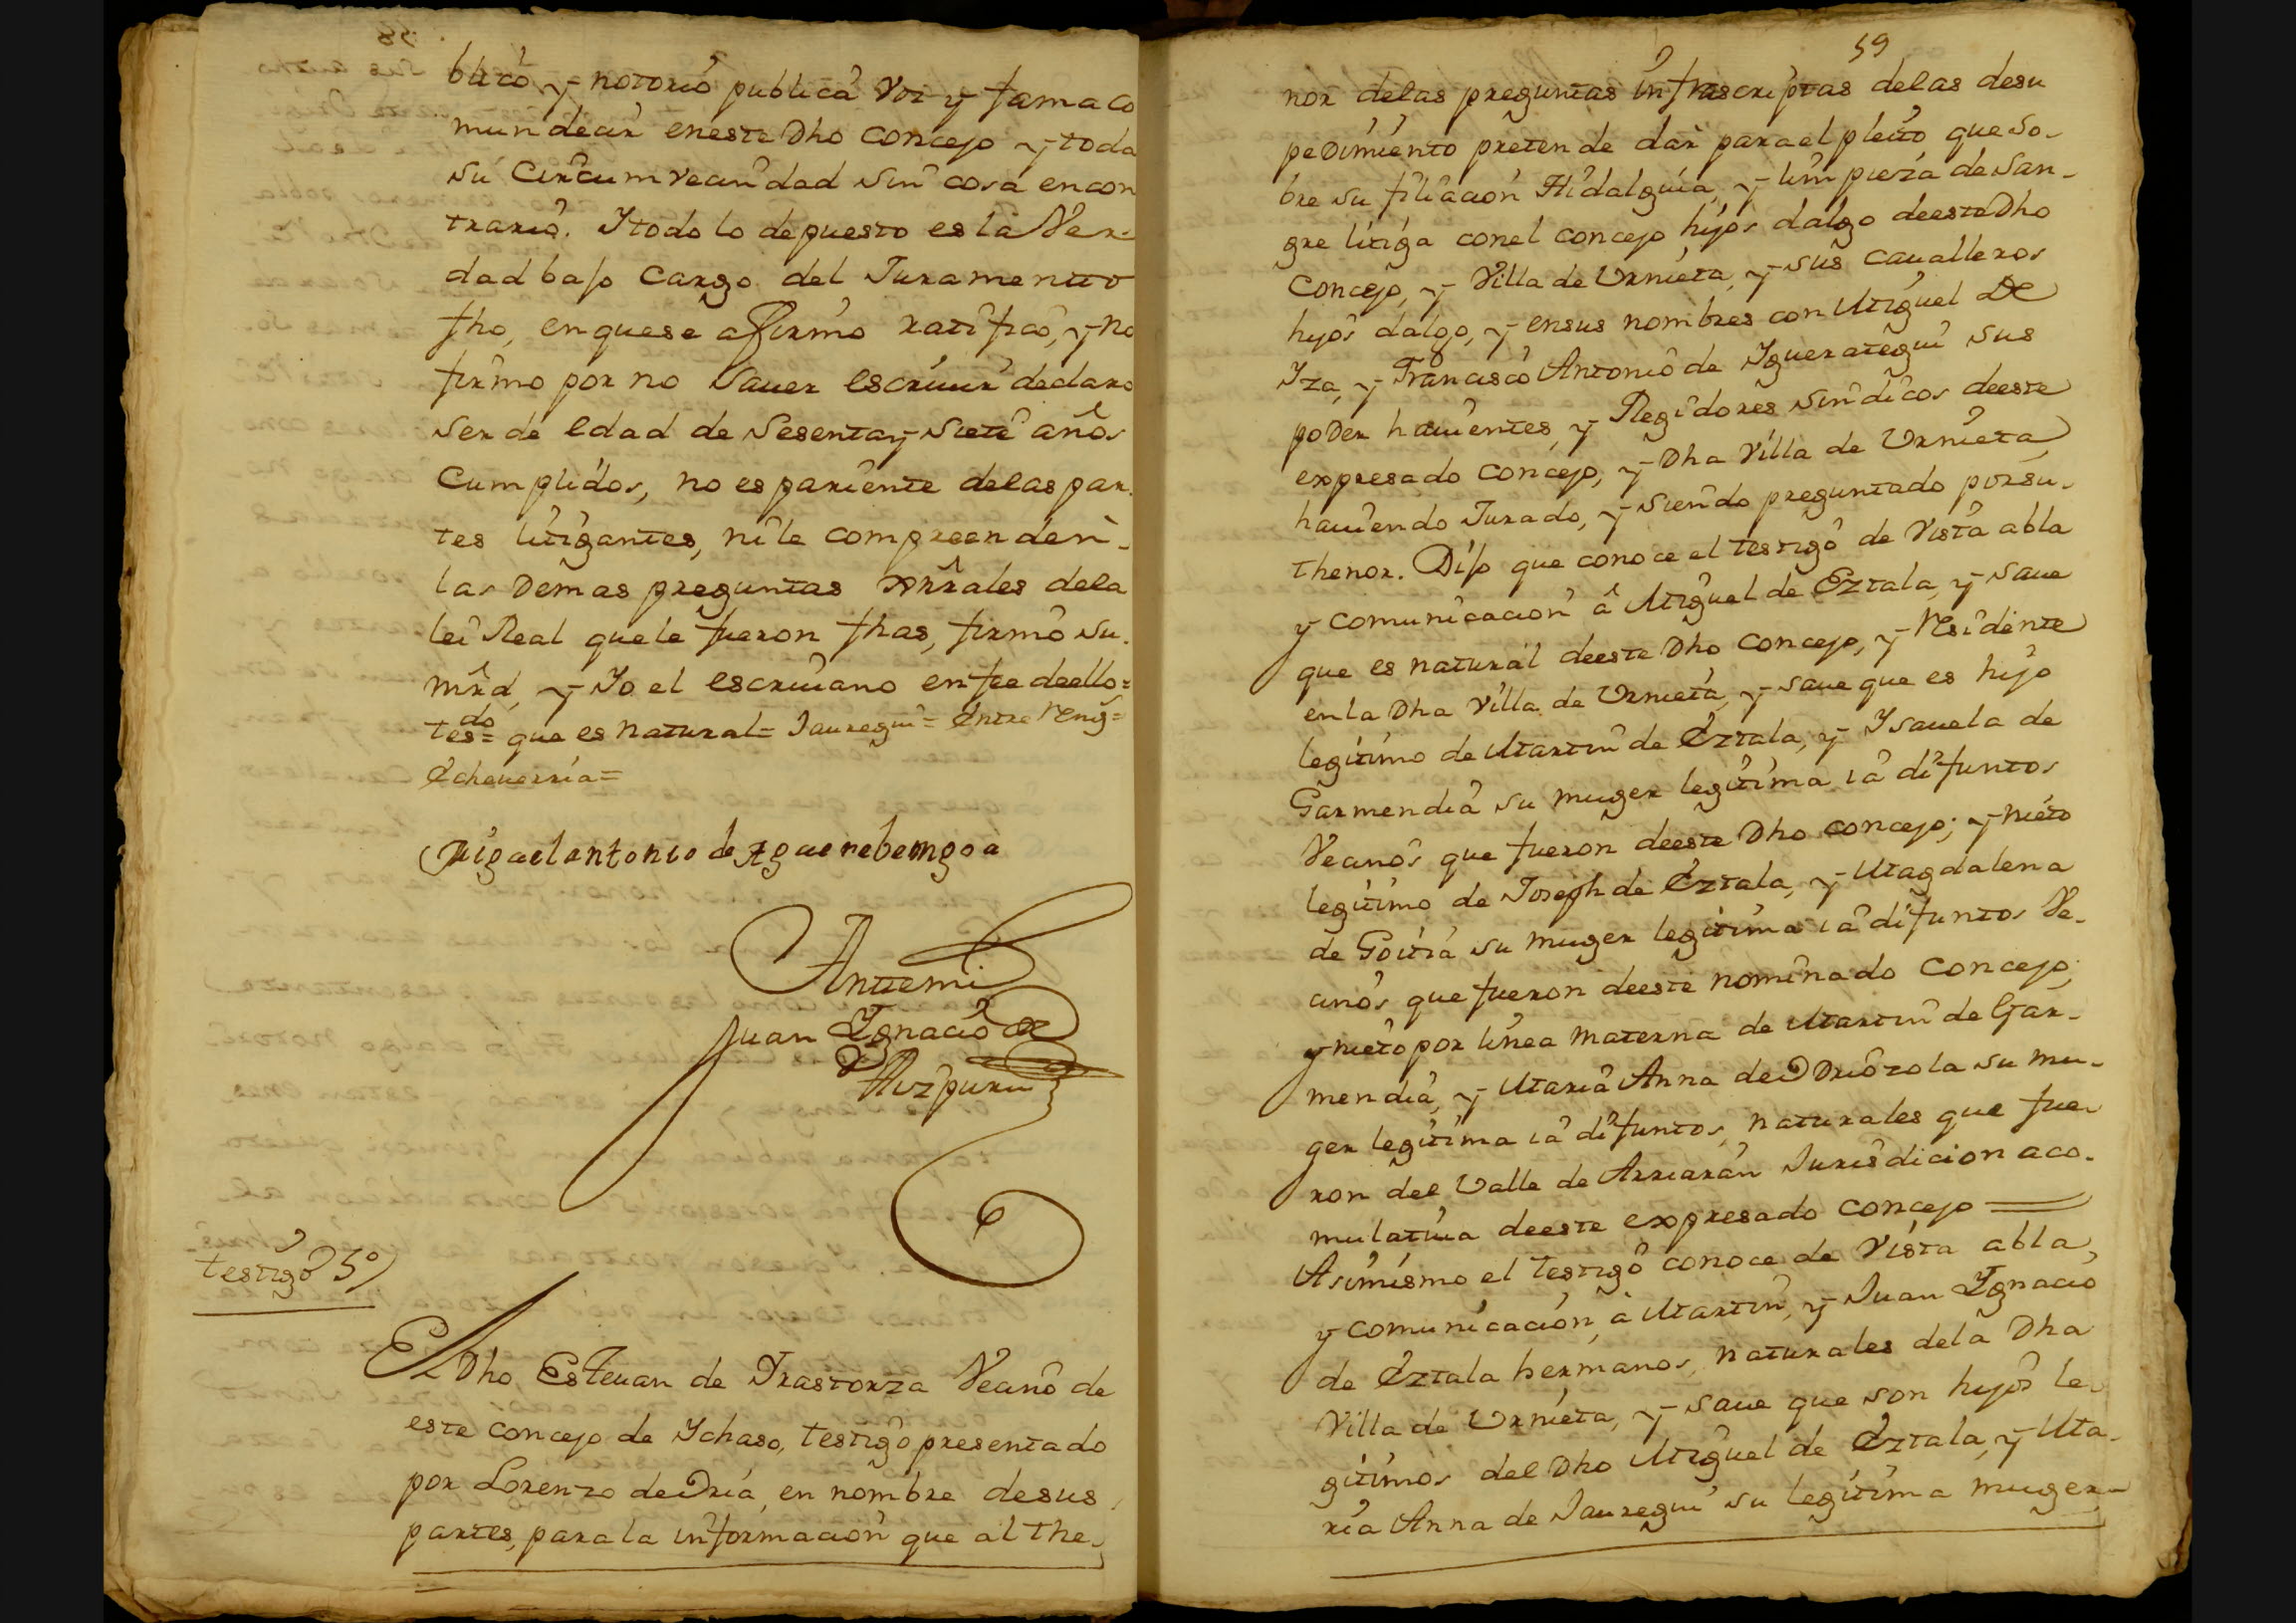 blico, y notorio publica voz y fama co
mun decir en este Dho Concejo y toda
su Circumvecindad sin cosa en con
trario. Y todo lo depuesto es la Ver-
dad bajo Cargo del Juramento
fho, en que se afirmo ratifico, y no
firmo por no Sauer escriuir declaro
ser de edad de Sesenta y siete años
Cumplidos, no es pariente de las par-
tes litigantes, ni le compreenden
las Demas preguntas grãles de la
lei Real que le fueron fhas, firmo su
mrd, y Yo el escriuano en fee de ello=
tesdo= que es natural= Jauregui= Entre reng=
Echeuerria=
Miguel antonio de Aguerebengoa
Antemi
Juan Ignacio de
Aizpuru
testigo 5º
El Dho Esteuan de Yrastorza Vecino de
este concejo de Ychaso, testigo presentado
por Lorenzo de Oria, en nombre de sus
partes, para la informacion que al the-
59
nor de las preguntas infrascriptas de las de su
peDimiento pretende dar para el pleito que so-
bre su filiacion Hidalguia, y limpieza de San-
gre litiga con el concejo hijos dalgo de este Dho
Concejo, y Villa de Urnieta, y sus caualleros
hijos dalgo, y en sus nombres con Miguel De
Yza, y Francisco Antonio de Yguerategui sus
poDer hauientes, y Regidores sindicos de este
expresado concejo, y Dha Villa de Urnieta,
hauiendo Jurado, y siendo preguntado por su
thenor. Dijo que conoce el testigo de Vista abla
y comunicacion â Miguel de Eztala, y saue
que es natural de este Dho concejo, y residente
en la Dha Villa de Urnieta, y saue que es hijo
legitimo de Martin de Eztala, y Ysauela de
Garmendia su muger legitima ia difuntos
Vecinos que fueron de este Dho concejo; y nieto
legitimo de Joseph de Eztala, y Magdalena
de Goitia su muger legitima ia difuntos Ve-
cinos que fueron de este nominado Concejo;
y nieto por linea materna de Martin de Gar-
mendia, y Maria Anna de Oriozola su mu-
ger legitima ia difuntos, naturales que fue-
ron del Valle de Arriaran Jurisdicion aco-
mulatiua de este expresado concejo
Asimismo el testigo conoce de Vista abla,
y comunicacion, â Martin, y Juan Ygnacio
de Eztala hermanos, naturales de la Dha
Villa de Urnieta, y saue que son hijos le-
gitimos del Dho Miguel de Eztala, y Ma-
ria Anna de Jauregui su legitima muger